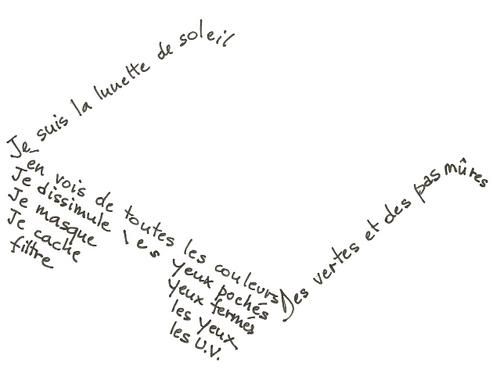 Je suis la lunette de soleil
J'en vois de toutes les couleurs
Je dissimule les yeux pochés
Je masque yeux fermés
Je cache les yeux
filtre les U.V.
Des vertes et des pas mûres